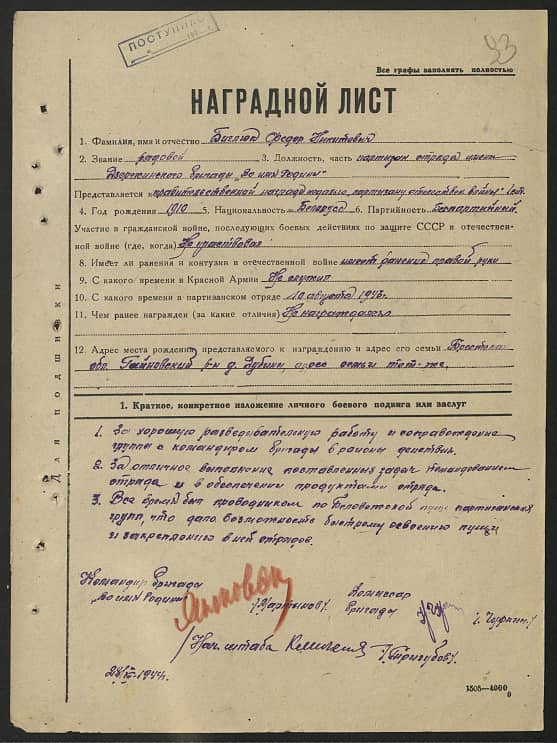 ПОСТУПИЛ
93
Все графы заполнять полностью
НАГРАДНОЙ ЛИСТ
1. Фамилия, имя и отчество Биглюк Федор Никитович
2. Звание рядовой 3. Должность, часть партизан отряда имени
Дзержинского бригады "Во имя Родины"
Представляется к правительственной награде медалью "партизану отечествен войны" ІІст.
4. Год рождения 1910 5. Национальность Белорусс 6. Партийность Беспартийный.
Участие в гражданской войне, последующих боевых действиях по защите СССР и отечествен-
ной войне (где, когда) Не участвовал
8. Имеет ли ранения и контузии в отечественной войне имеет ранение правой руки
9. С какого времени в Красной Армии Не служил
10. С какого времени в партизанском отряде 10 августа 1943г.
11. Чем ранее награжден (за какие отличия) Не награждался
12. Адрес места рождения представляемого к награждению и адрес его семьи Брестская
обл. Гайновский р-н д. Дубины, адрес семьи тот-же.
1. Краткое, конкретное изложение личного боевого подвига или заслуг
1. За хорошую разведывательную работу и сопровождение
группы с командиром бригады в районы действия.
2. За отличное выполнение поставленных задач командованием
отряда и в обеспечении продуктами отряда.
3. Все время был проводником по Беловежской пуще партизанских
групп, что дало возможность быстрому освоению пущи
и закреплению в ней отрядов.
Командир бригады
"Во имя Родины" /Мартынов/
Комиссар
бригады /Чуркин/
Нач. штаба /Тригубов/.
1944г.
1505—4000
Для подшивки